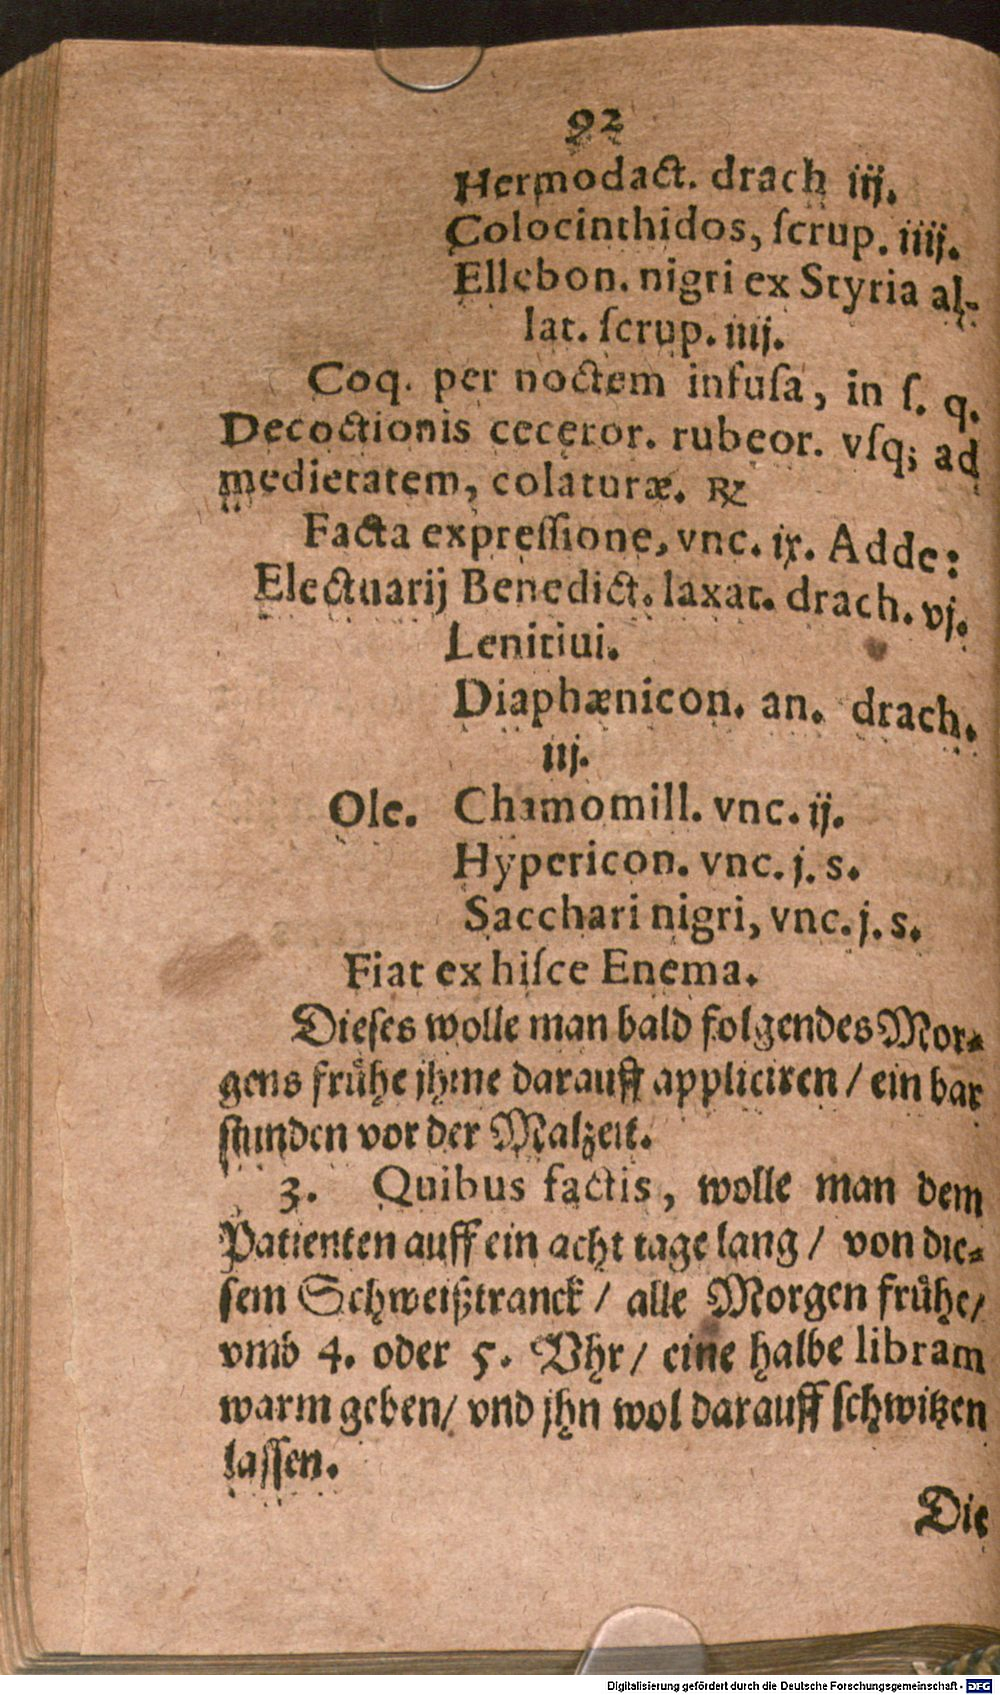 92
Hermodact. drach iij.
Colocinthidos, ſcrup. iiij.
Ellebon. nigri ex Styria al-
lat. ſcrup. iiij.
Coq. per noctem infuſa, in ſ. q.
Decoctionis ceceror. rubeor. vſq; ad
medietatem, colaturæ. ℞
Facta expreſſione, vnc. ix. Adde:
Electuarij Benedict. laxat. drach. vj.
Lenitiui.
Diaphænicon. an. drach.
iij.
Ole. Chamomill. vnc. ij.
Hypericon. vnc. j. s.
Sacchari nigri, vnc. j. s.
Fiat ex hiſce Enema.
Dieſes wolle man bald folgendes Mor-
gens frühe jhme darauff appliciren / ein bar
ſtunden vor der Malzeit.
3. Quibus factis, wolle man dem
Patienten auff ein acht tage lang / von die-
ſem Schweißtranck / alle Morgen frühe/
vmb 4. oder 5. Vhr / eine halbe libram
warm geben/ vnd jhn wol darauff ſchwitzen
laſſen.
Die
Digitalisierung gefördert durch die Deutsche Forschungsgemeinschaft - DFG